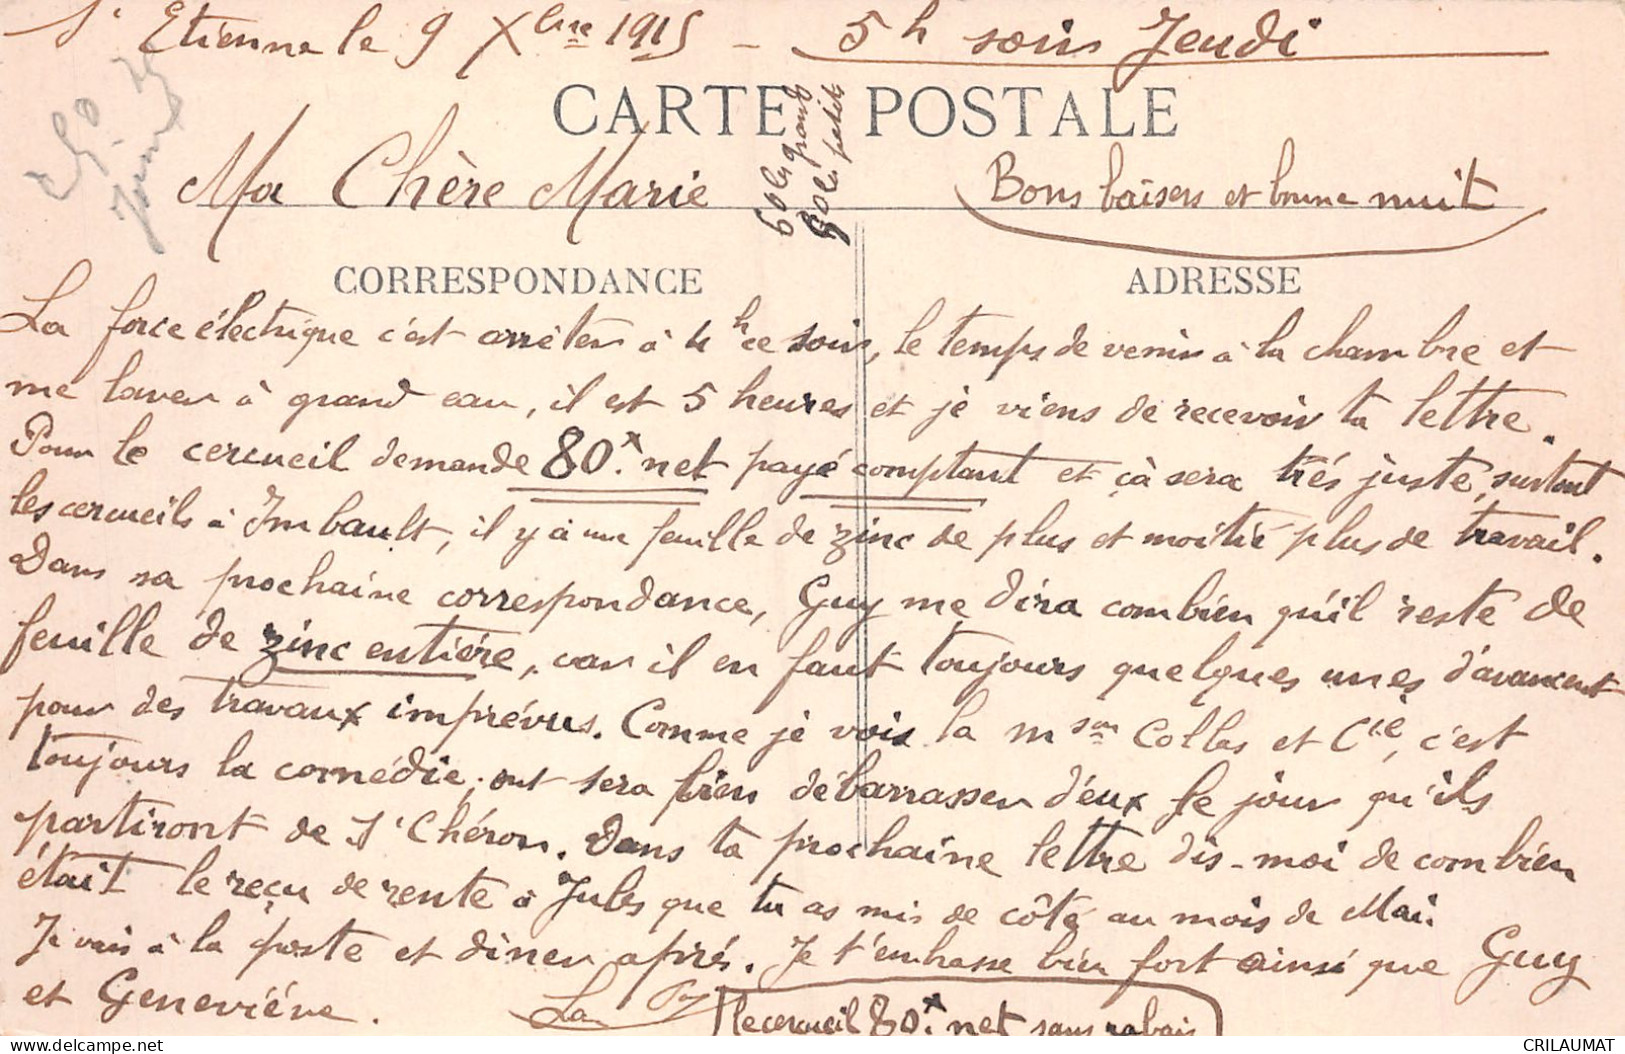 St Etienne le 9 Xbre 1915 - 5h soir Jeudi
CARTE POSTALE
60 les grands
80 les petits
Ma Chère Marie
Bons baisers et bonne nuit
CORRESPONDANCE
ADRESSE
La force électrique c'est arrêter à 4h ce soir, le temps de venir à la chambre et
me laver à grand eau, il est 5 heures et je viens de recevoir ta lettre.
Pour le cercueil demande 80.x net payé comptant et çà sera très juste, surtout
les cercueils à Imbault, il y a une feuille de zinc de plus et moitié plus de travail.
Dans sa prochaine correspondance, Guy me dira combien qu'il reste de
feuille de zinc entière, car il en faut toujours quelques unes d'avance
pour des travaux imprévus. Comme je vois la mson Collas et Cie, c'est
toujours la comédie, ont sera bien débarrasser d'eux le jour qu'ils
partiront de St Chéron. Dans ta prochaine lettre dis-moi de combien
était le reçu de rente à Jules que tu as mis de côté au mois de Mai.
Je vais à la poste et diner après. Je t'embrasse bien fort ainsi que Guy
et Geneviève.
le cercueil 80.x net sans rabais
CRILAUMAT